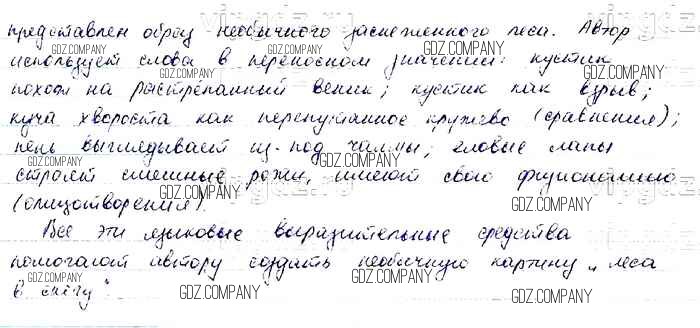 представлен образ необычного заснеженного леса. Автор
использует слова в переносном значении: кустик
похож на растрёпанный веник; кустик как взрыв;
куча хвороста как перепутанное кружево (сравнения);
пень выглядывает из-под чалмы; еловые лапы
строят смешные рожи, имеют свою физиономию
(олицетворения).
Все эти языковые выразительные средства
помогают автору создать необычную картину „леса
в снегу".
GDZ.COMPANY
vipgdz.ru